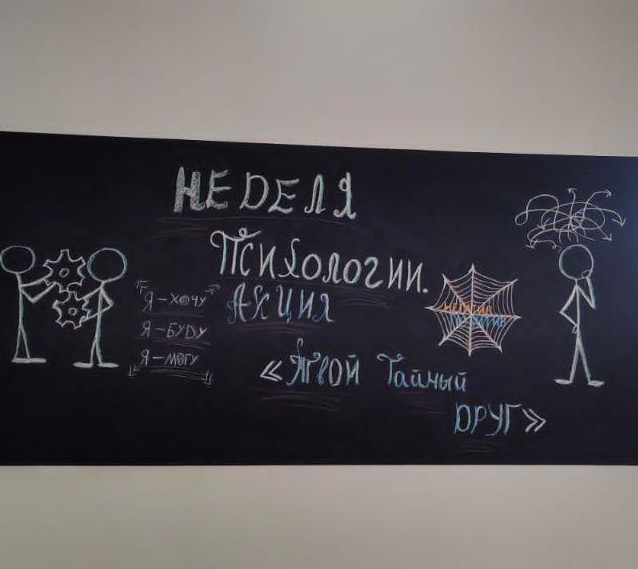 НЕДЕЛЯ
Психологии.
АКЦИЯ
Я-ХОЧУ
Я-БУДУ
Я-МОГУ
«Я твой Тайный
ДРУГ»